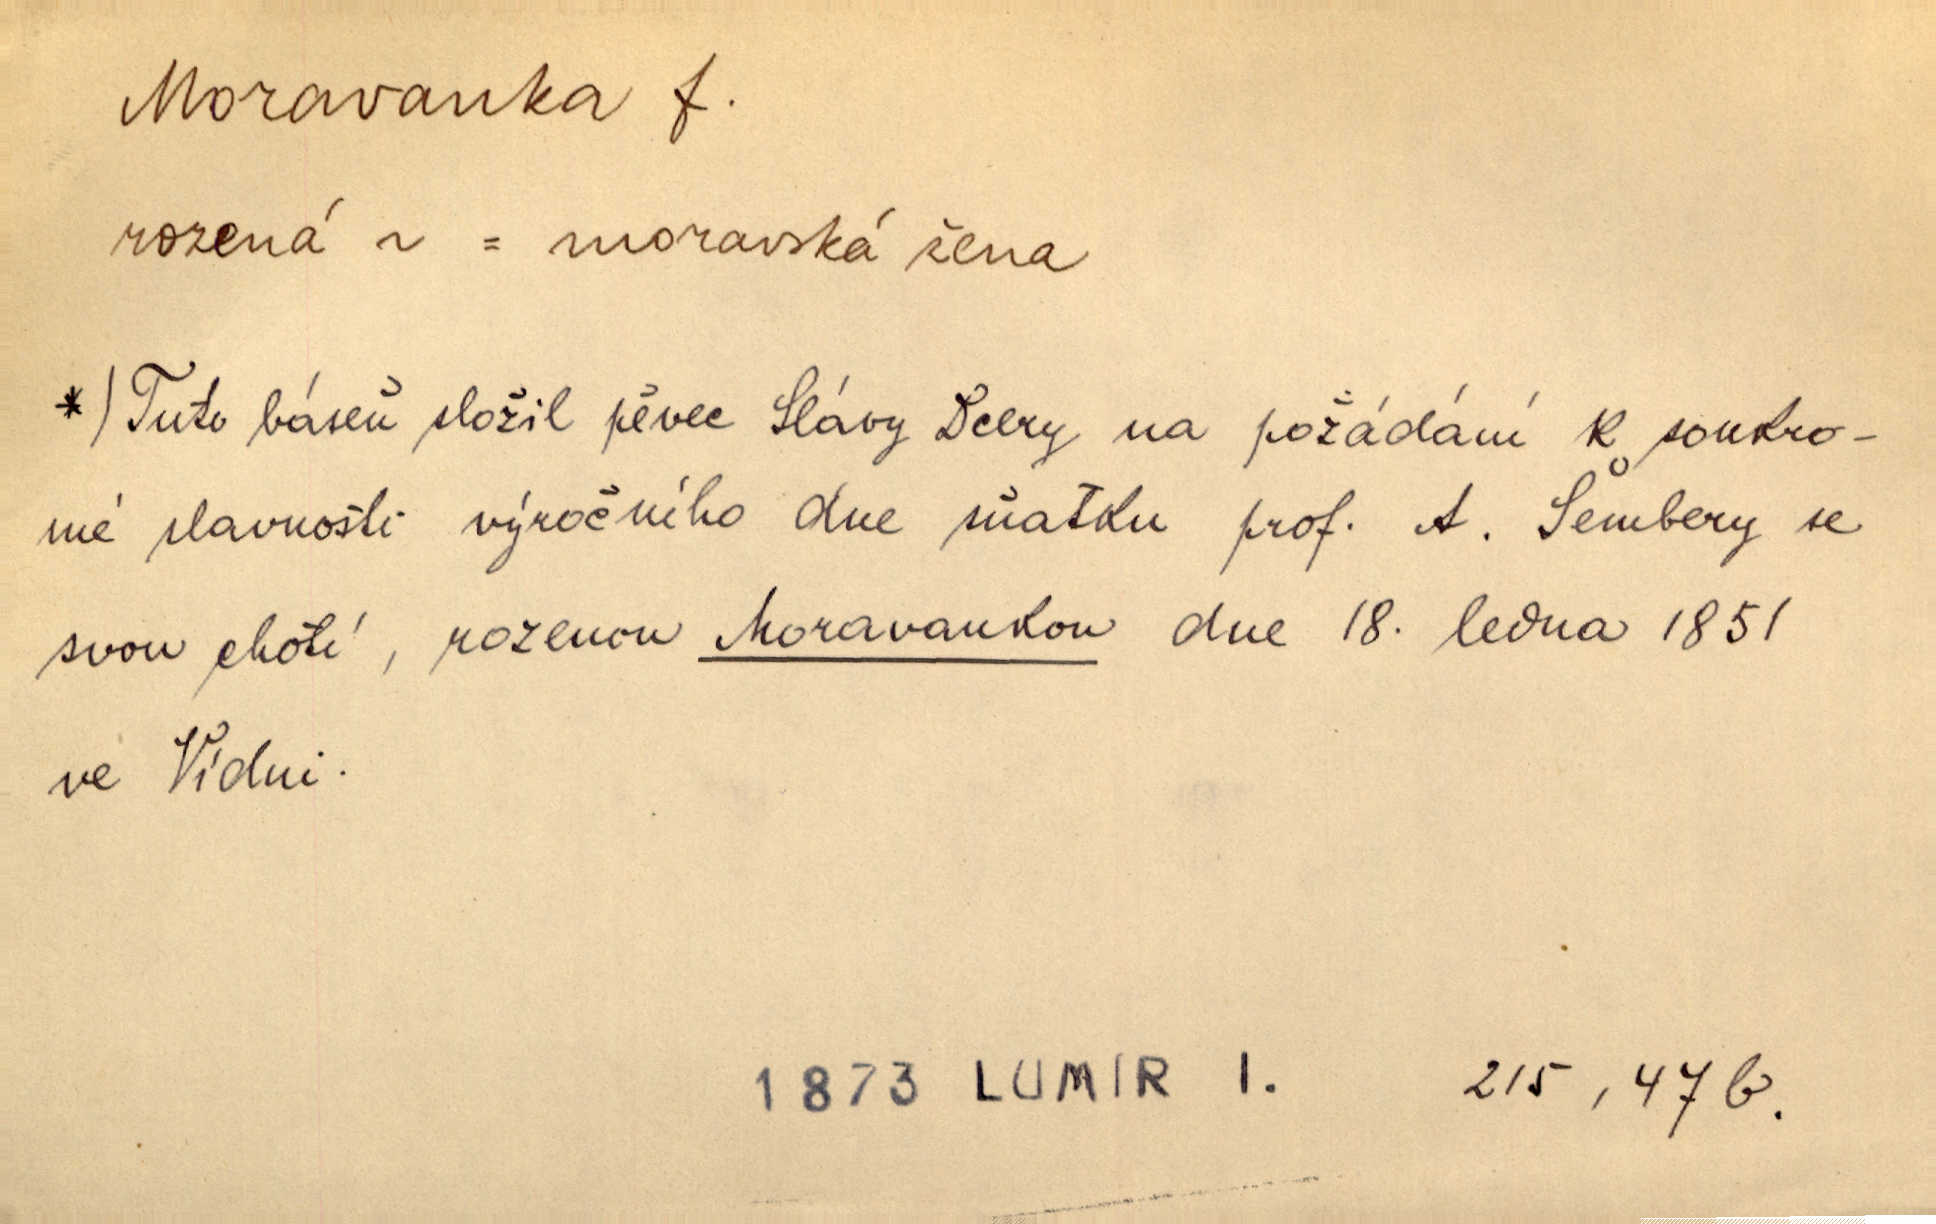 Moravanka f.
rozená ~ = moravská žena
*) Tuto báseň složil pěvec Slávy Dcery na požádání k soukro-
mé slavnosti výročního dne sňatku prof. A. Šembery se
svou chotí, rozenou Moravankou dne 18. ledna 1851
ve Vídni.
1873 LUMÍR I. 215, 47 b.